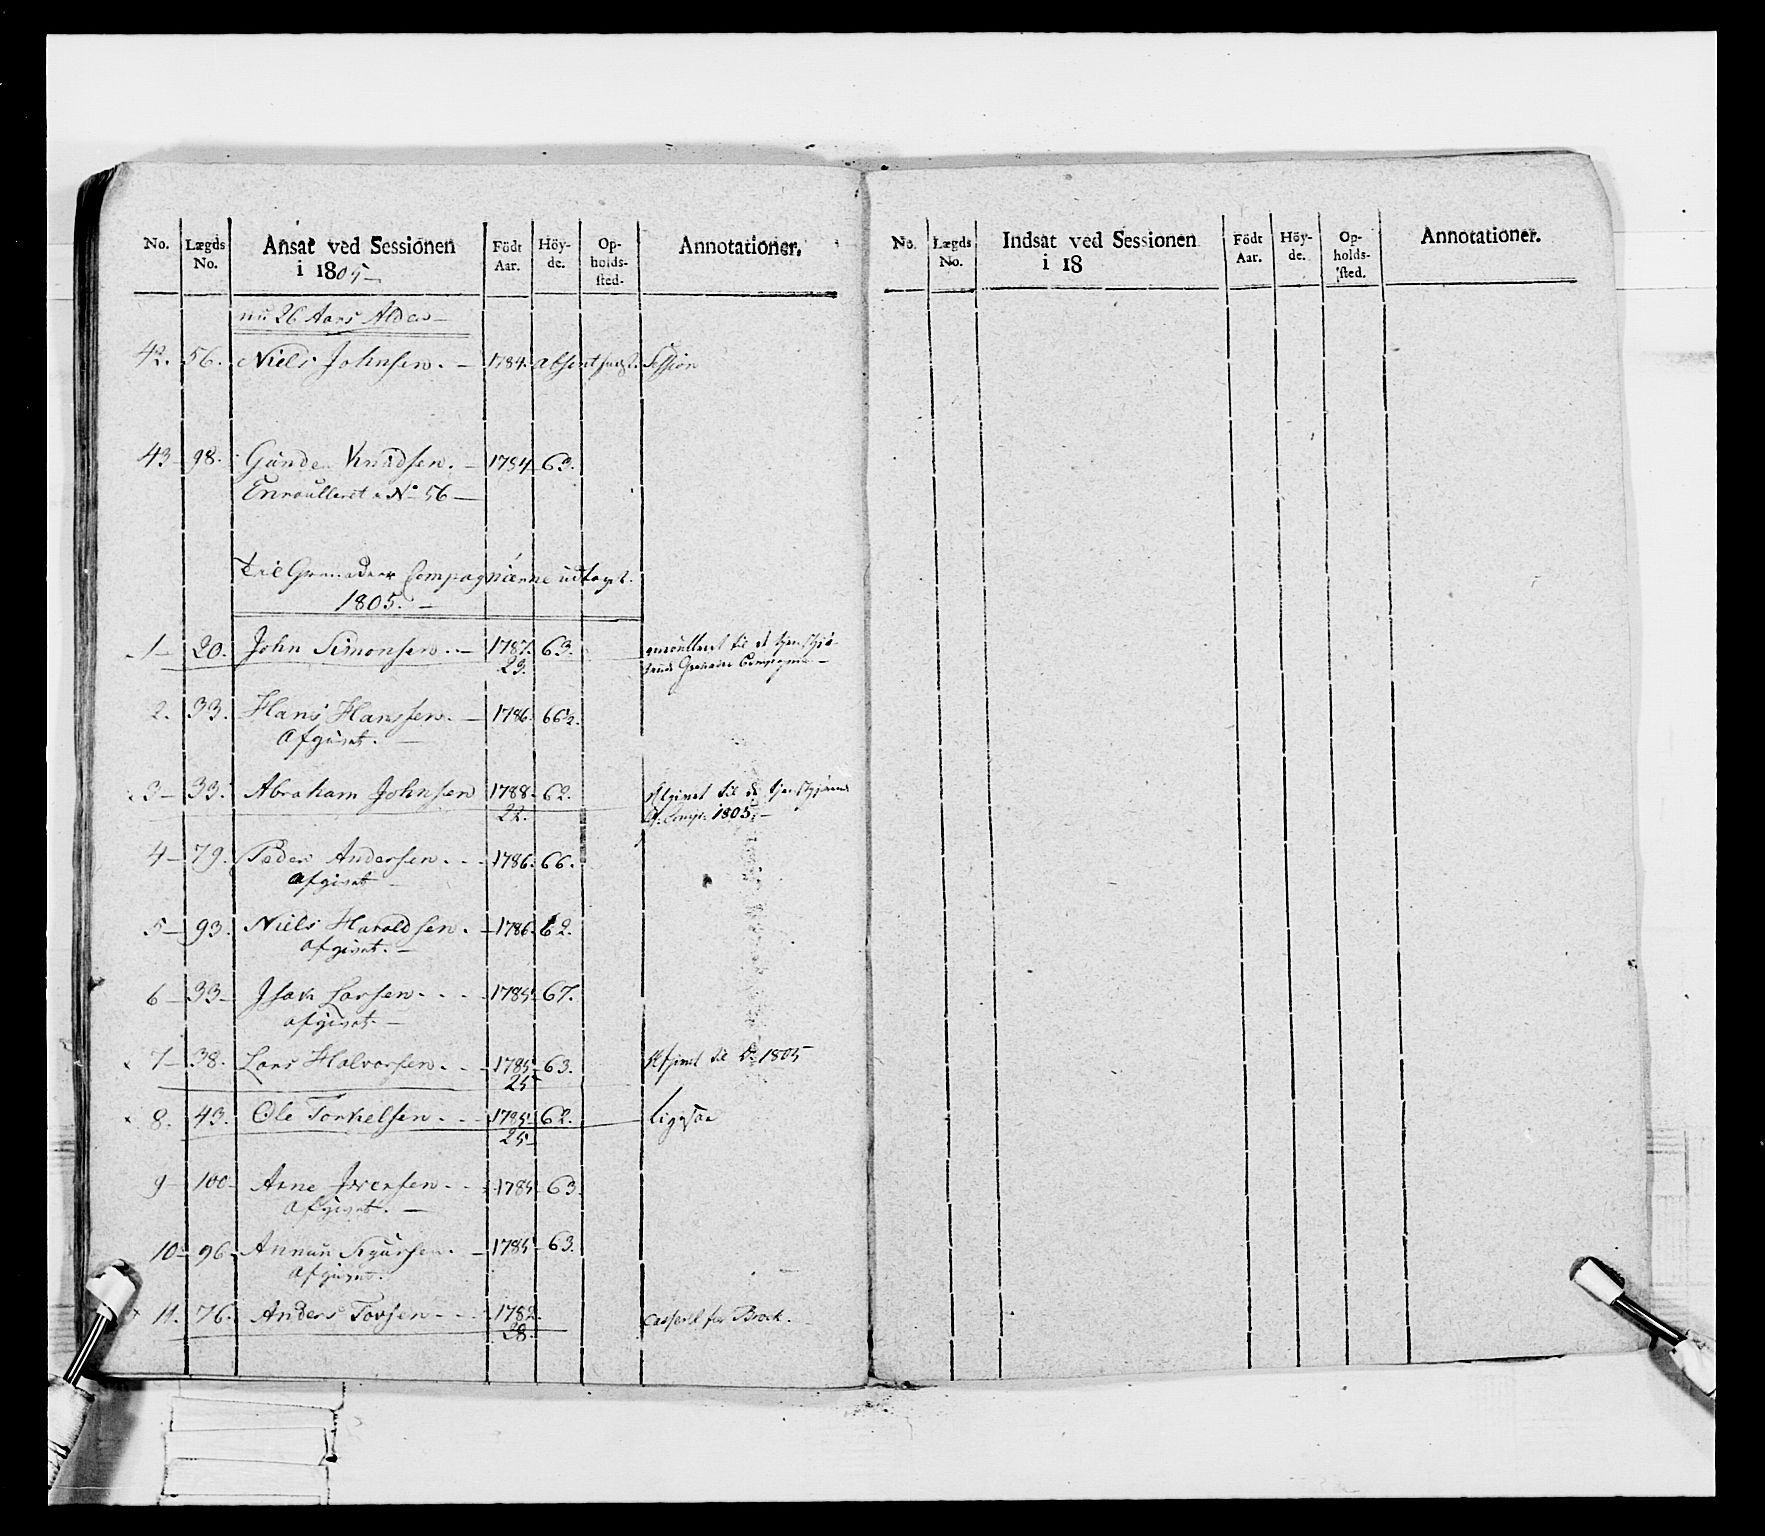 No. Lægds No. Ansat ved Sessionen i 1805 Födt Aar. Höy-de. Op-holds-sted. Annotationer.
nu 26 Aars Alder
42. 56. Niels Johnsen. 1784. absent Session
43 98. Gunde Knudsen. 1784 63.
Enroulleret No 56
til Grenadeer Compagnierne udtaget
1805.
1 20. John Simonsen. 1787. 63. enroulleret til det
23. Compagnie
2. 33. Hans Hanssen. 1786. 66½.
Afgivet.
3 33. Abraham Johnsen 1788. 62. Afgivet til de
22. Comp. 1805.
4 79. Peder Andersen. 1786. 66.
Afgivet
5 93. Niels Haraldsen. 1786. 62.
Afgivet.
6 33 Isak Larsen. 1785 67.
afgivet.
7 38. Lars Halvorsen. 1785 63. Afgivet til Do 1805
25
8. 43. Ole Torkelsen. 1785 62. Ligesaa
25
9 100 Arne Iversen. 1785 63.
Afgivet.
10 96 1785 63.
Afgivet.
11. 76. Anders 1782 Casseret for Brock.
28.
No. Lægds No. Indsat ved Sessionen i 18 Födt Aar. Höy-de. Op-holds-sted. Annotationer.